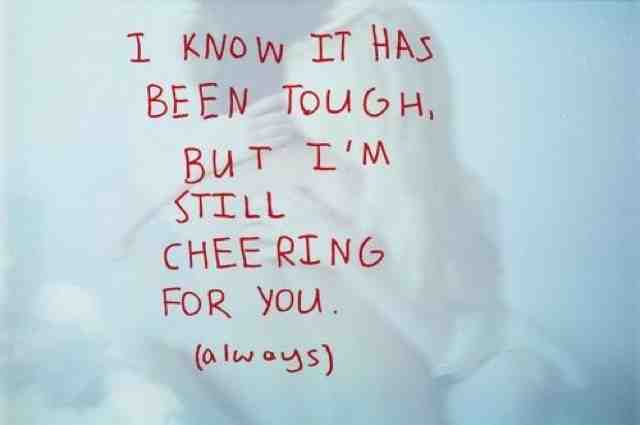 I KNOW IT HAS
BEEN TOUGH,
BUT I'M
STILL
CHEERING
FOR YOU.
(always)